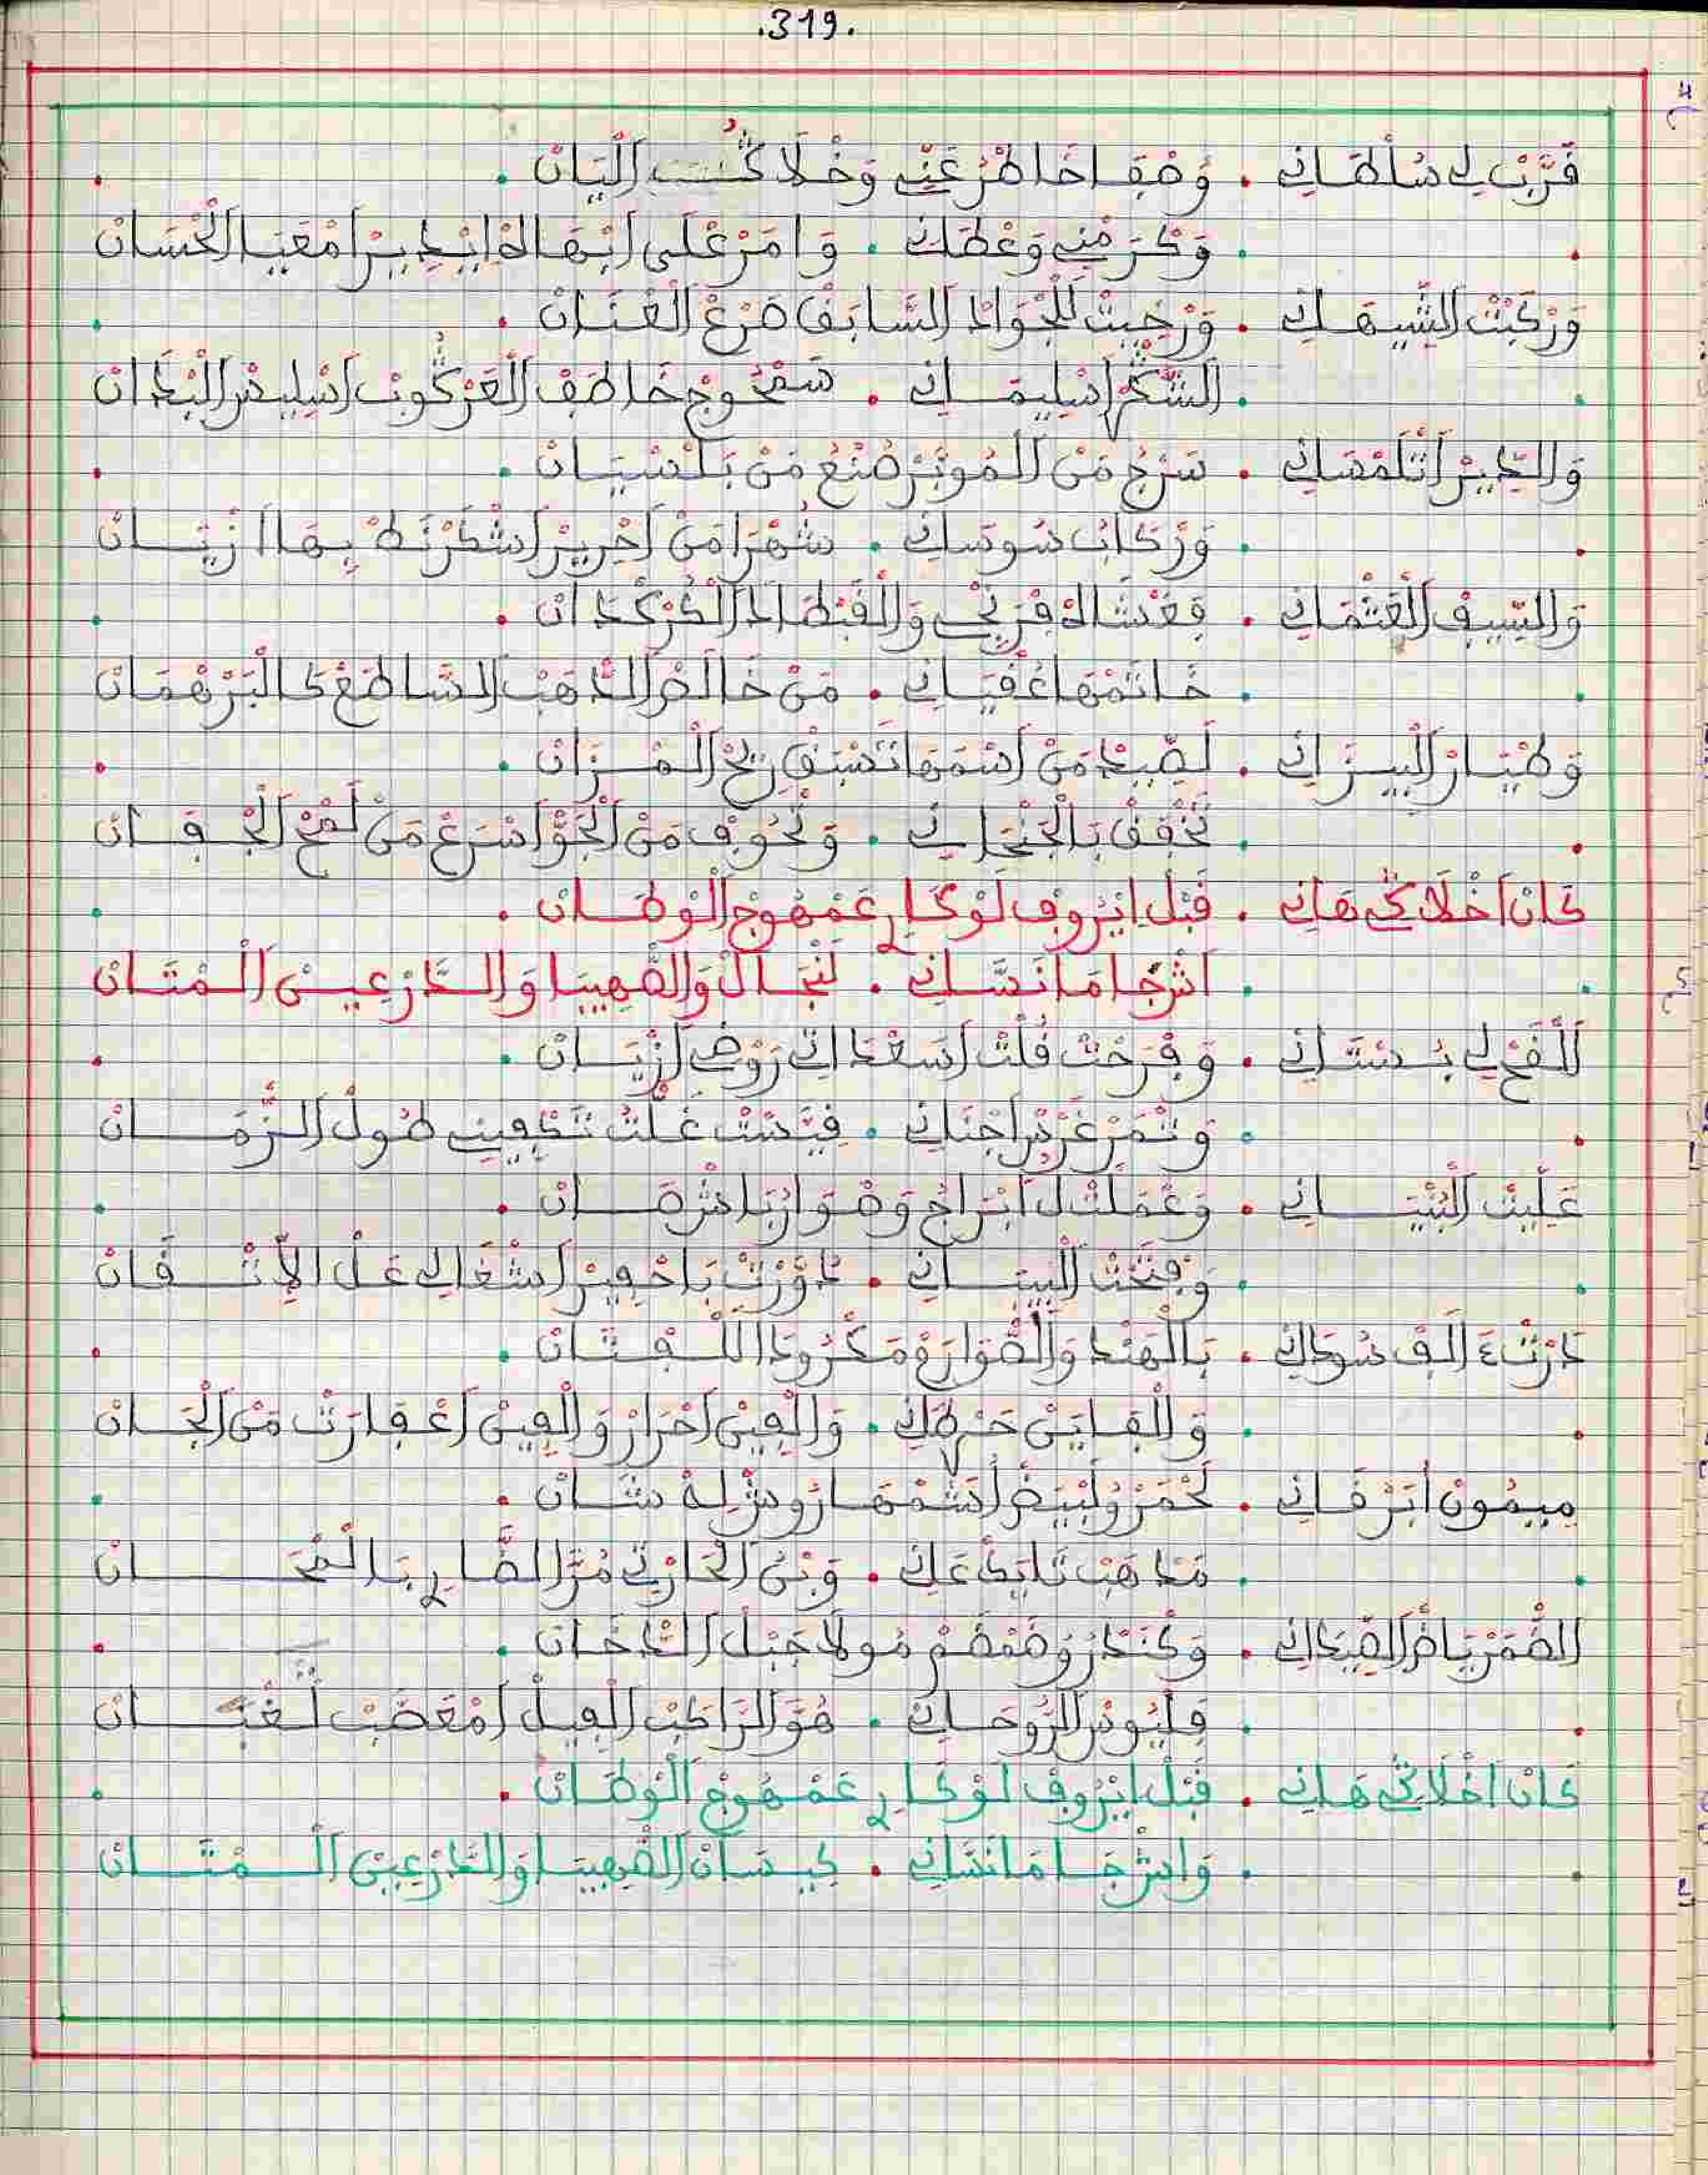 .319.
قَرَّبْ لِي سُلْطَانِي . وَصْفَا خَاطْرُ عَنِّي وَخْلَا كُتْبَ الْبَيَانْ .
. وَكْرَمْنِي وَعْطَانِي . وَامَرْ عْلَى ابْهَا لَدْ ايْدِيرْ امْعَايَا الْحْسَانْ
وَرْكَبْتْ الشِّيهَانِي . وَرْخِيتْ لَلْجْوَادْ السَّابَقْ صَرْعْ الْعْنَانْ .
. الشَّكْمْ اسْلِيمَانِي . سَمْحُوجْ خَاطَفْ الْعَرْكُوبْ اسْلِيسْ الْبْدَانْ
وَالدِّيرْ اتْلَمْسَانِي . سَرْجُ مَنْ الْمُوبَرْ صُنْعُ مَنْ بَلَنْسِيَانْ .
. وَرْكَابْ سُوسَانِي . شُهْرَا مَنْ احْرِيرْ اشْكَرْنَطْ بِهَا ازْيَانْ
وَالسِّيفْ الْعَثْمَانِي . فَغْشَاهْ فْرَنْجِي وَالْقَبْطَا دَالْكُرْكْدَانْ .
. خَاتَمْهَا عُقْيَانِي . مَنْ خَالَصْ الدّْهَبْ السَّاطَعْ كَالْبَرْهْمَانْ
وَطْيَارْ الْبِيزَانِي . لَصِّيدْ مَنْ اسْمَهَا تَسْبَقْ رِيحْ الْمْزَانْ .
. تَخْفَقْ بَالْجَنْحَانِي . وَتْحُوفْ مَنْ الْجَوّْ اسْرَعْ مَنْ لَمْحْ الْجْفَانْ
كَانْ اخْلَاكِي هَانِي . قَبْلْ ايْرُوفْ لَوْكَارِ عَمْهُوجْ الْوْطَانْ .
. اشْ جَا مَا نَسَّانِي . لَنْجَالْ وَالصّْهِيبَا وَالدَّارْعِينْ الْمْتَانْ
اللْقَحْ لِي بُسْتَانِي . وَفْرَحْتْ قُلْتْ اسَعْدَاتِي رَوْضِي ازْيَانْ .
. وَتْمَرْ غَرْسْ اجْنَانِي . فِيَّسْتْ غَلّْتُ تَكْفِينِي طُولْ الزّْمَانْ
عَلِّيتْ الْبُنْيَانِي . وَعْمَلْتْ لُ ابْرَاجْ وَصْوَارْ بَاشْرَهَانْ .
. وَفْتَحْتْ الْبِيبَانِي . دَوَّرْتْ بَاحْفِيرْ اشْغَالِي عَلْ الِاتْقَانْ
دَرْتْ ءَالَفْ سُودَانِي . بَالْهَنْدْ وَالصّْوَارَعْ مَكْرُودَا اللَّفْتَانْ .
. وَالْفَايَنْ حَرْطَانِي . وَالْفِينْ احْرَارْ وَالْفِينْ اعْفَارَتْ مَنْ الْجَانْ
مِيمُونْ ابَرْقَانِي . لَحْمَرْ وُلَبْيَضْ اشَمْهَارُوشْ لِهْ شَانْ .
. مَدْهَبْ نَايَدْ عَانِي . وَبْنُ الْحَارْتِي مُرّْ الصَّارِ بَالْمْحَانْ
الضَّمْرْيَاضْ الصِّيدَانِي . وَكْنَدْرُ وَصَمْصَمْ مُولَا جْبَلْ الدّْخَانْ .
. قَلْيُوسْ الرُّوحَانِي . هُوَ الرَّاكَبْ الْفِيلْ امْعَصَبْ لَغْبَانْ
كَانْ اخْلَاكِي هَانِي . قَبْلْ ايْرُوفْ لَوْكَارِ عَمْهُوجْ الْوْطَانْ .
. وَاشْ جَا مَا نَسَّانِي . كِيسَانْ الصّْهِيبَا وَالدَّارْعِينْ الْمْتَانْ